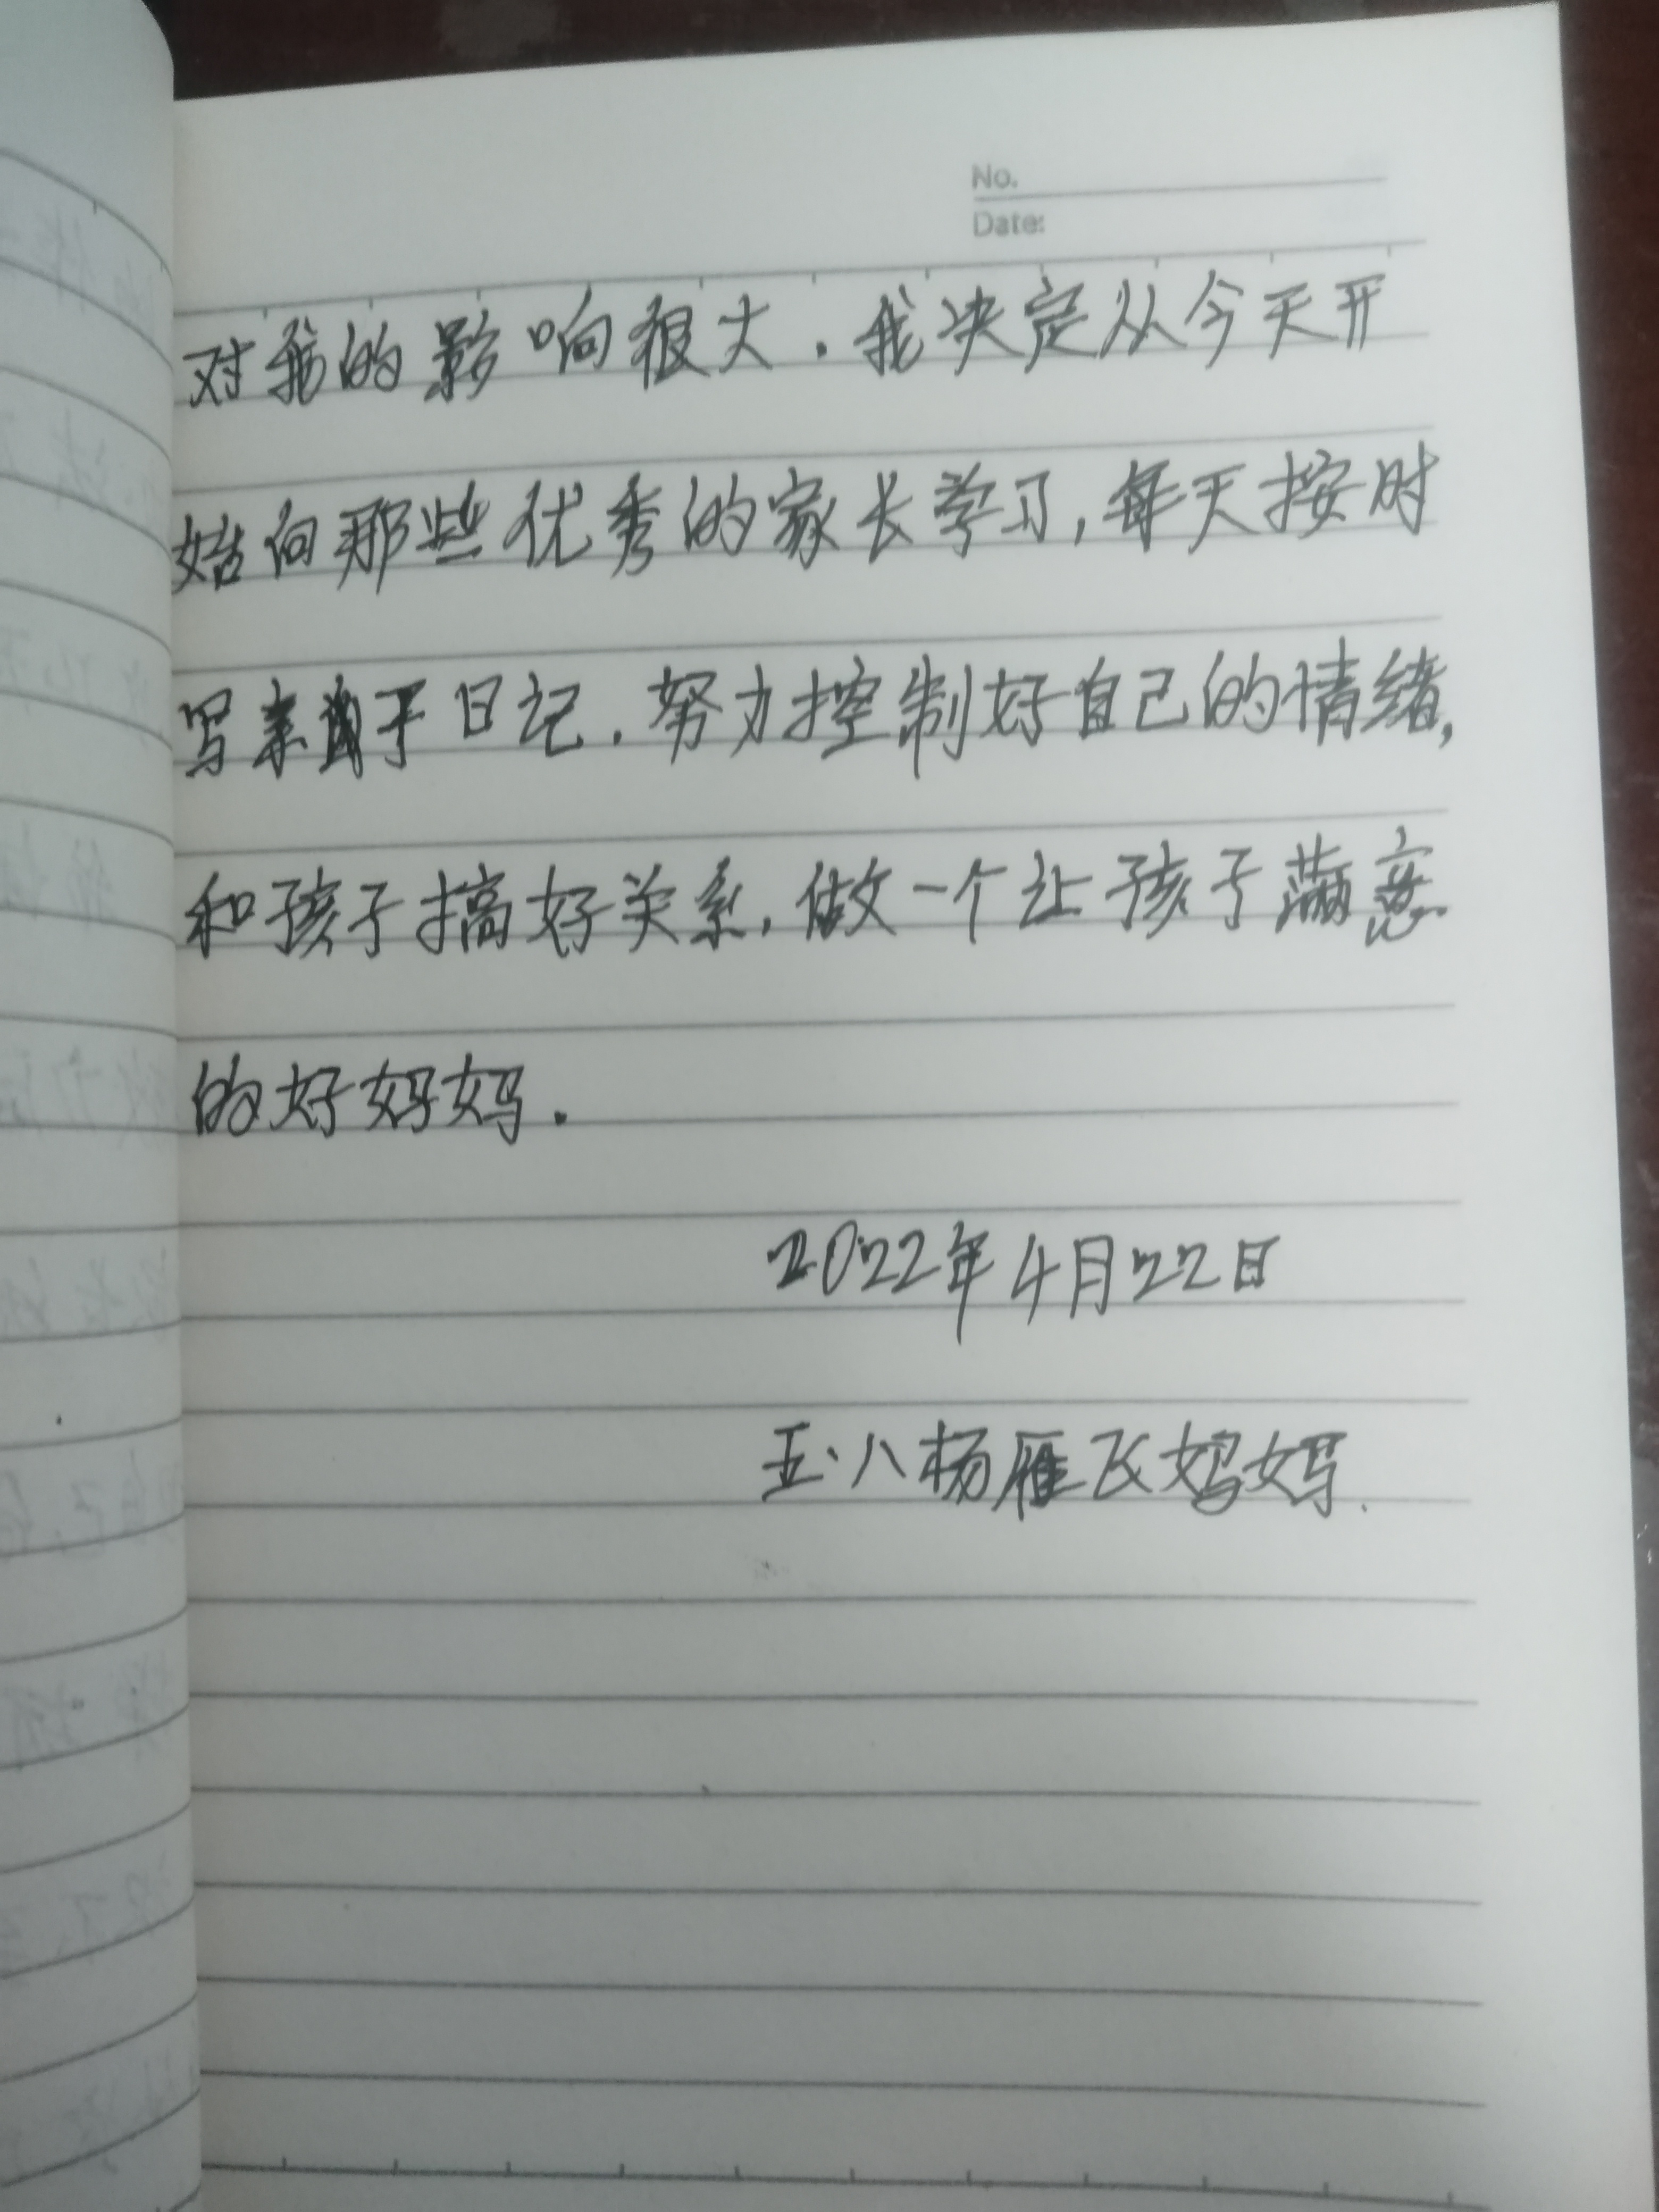 No.
Date:
对我的影响很大．我决定从今天开
始向那些优秀的家长学习，每天按时
写亲子日记．努力控制好自己的情绪，
和孩子搞好关系，做一个让孩子满意
的好妈妈．
2022年4月22日
五·八杨雁飞妈妈．